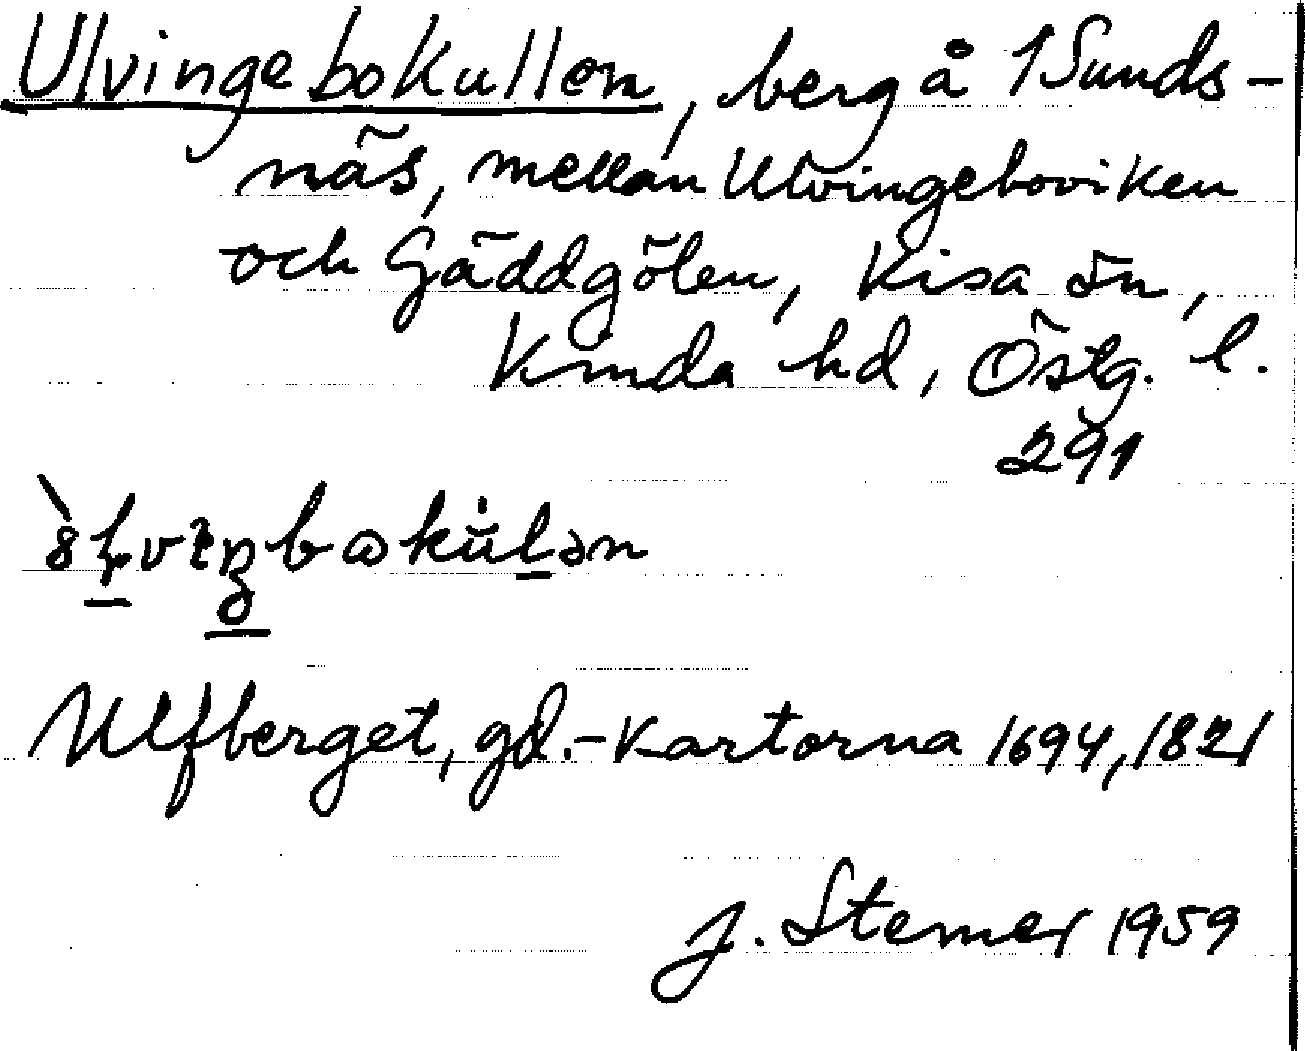 Ulvingebokullen, berg å 1 Sunds-
näs, mellan Ulvingeboviken
och Gäddgölen, Kisa sn,
Kinda hd, Östg. l.
291
Ulfberget, gd.-kartorna 1694, 1821
J. Sterner 1959